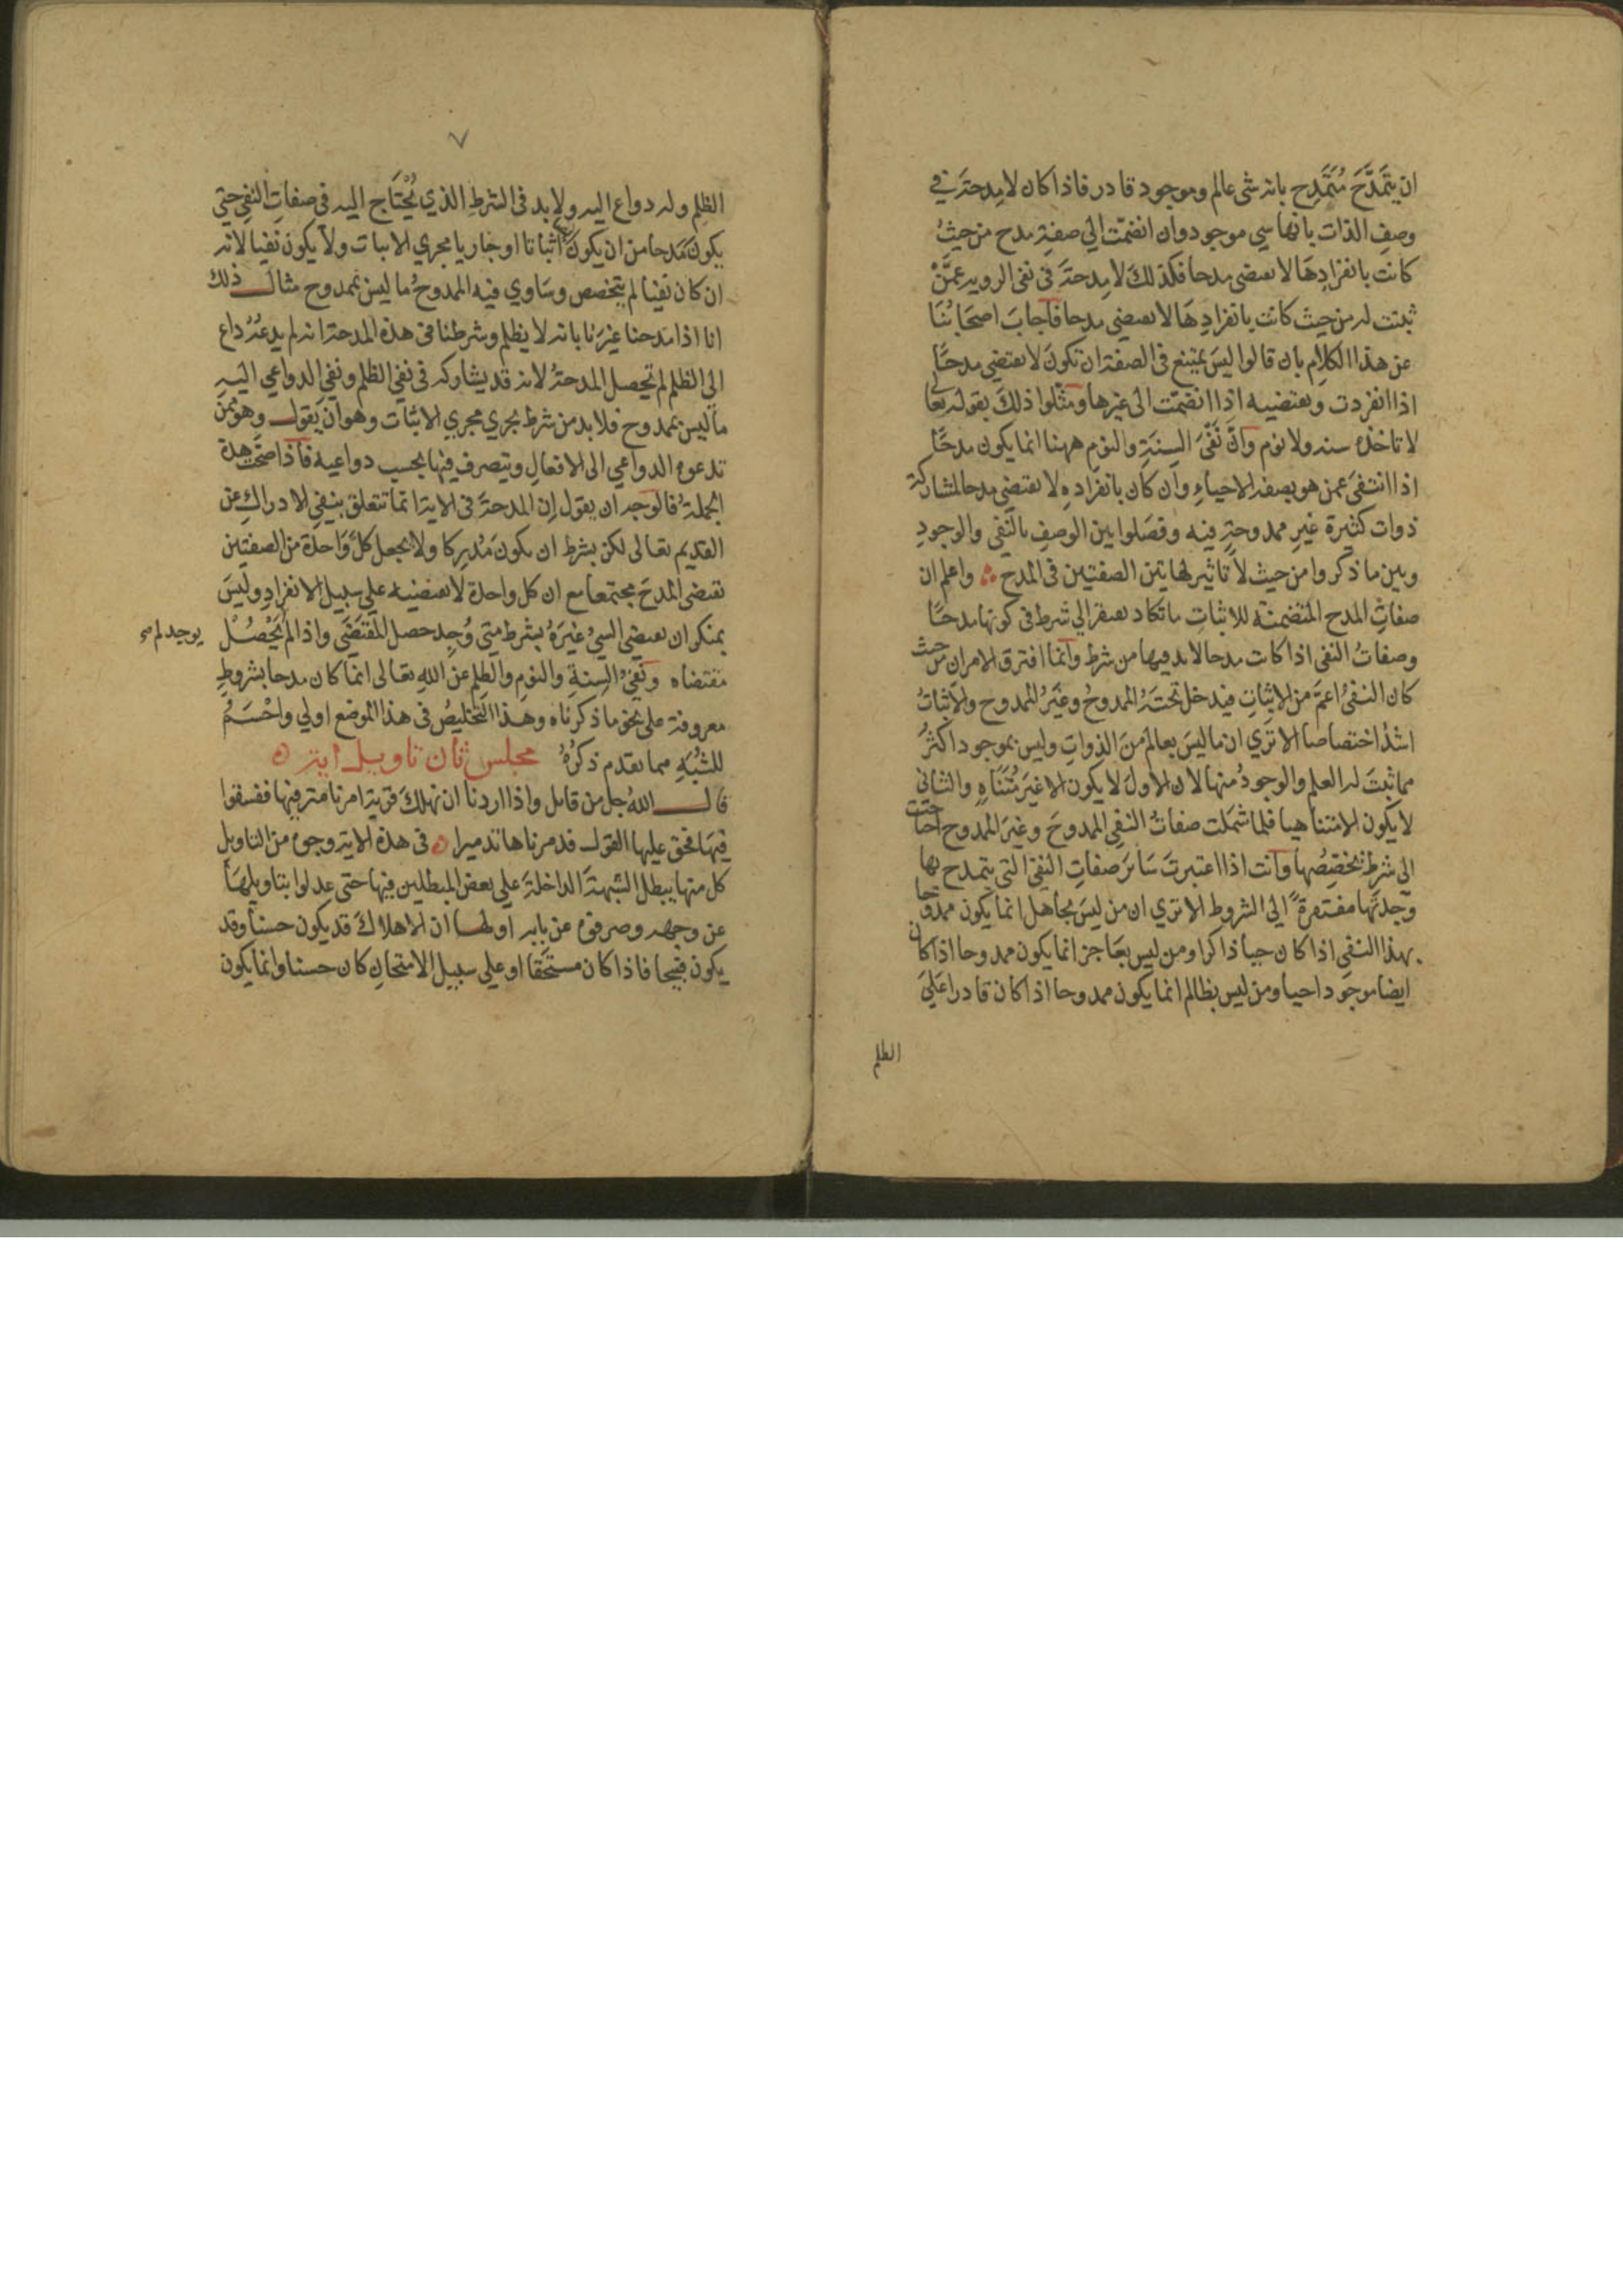 ان يتمَدَّحَ مُتَمَدِح بانه شى عالم وموجود قادر فاذا كان لا مدحةَ في
وصفِ الذات بانها سي موجود وان انضمّت الي صفةِ مدح من حيثُ
كانت بانفرادِهَا لا تعتضى مدحا فكذلكَ لا مِدحةَ فى نفى الرويه عمَّنْ
ثبتت له من حيث كانت بانفرادِهَا لا تعتضى مدحا فاجابَ اصحَابُنَا
عن هذا الكلام بان قالوا ليسَ يمتنع فى الصفة ان تكونَ لا تعتضي مدحًا
اذا انفردت وتعتضيه اذا انضمّت الى غيرها ومثّلوا ذلكَ بقوله تعا
لا تاخذه سنه ولا نوم وانَّ نَفْىَ السِنَةِ والنومِ ههنا انما يكون مدحًا
اذا انتفىَ عمن هو بصفه الاحياءِ وان كان بانفرادِهِ لا تعتضي مدحا لمشاركة
ذوات كثيرة غير ممدوحةٍ فيه وفصَلوا بين الوصفِ بالنفى والوجودِ
وبين ما ذكروا من حيث لا تاثير لهاتين الصفتين فى المدح ∴ واعلم ان
صفاتِ المدح المتضمنه للاثباتِ ما تكاد تعتقر الي شرط فى كونها مدحًا
وصفاتُ النفى اذا كانت مدحا لا بد فيها من شرط وانما افترق الامران من حيث
كان النفىُ اعمَّ من الاثباتِ فيدخل تحتَهُ الممدوحُ وغيرُ الممدوح والاثباتُ
اشدُ اختصاصا الا ترَي ان ما ليسَ بعالم منَ الذواتِ وليس بموجود اكثرُ
مما ثبتَ له العلم والوجودُ منها لان الاولَ لا يكون الا غيرَ مُتَنَاهٍ والثانى
لا يكون الا متناهيا فلما شملت صفاتُ النفى الممدوحَ وغيرَ الممدوح احتاجت
الي شرطٍ تخصّصُها وانت اذا اعتبرتَ سَائرَ صفاتِ النفى التى يتمدح بها
وجدتَها مفتقرةً الى الشروط الا ترَي ان من ليسَ بجاهل انما يكون ممدوحا
بهذا النفى اذا كان حيا ذاكرا ومن ليس بعَاجز انما يكون ممدوحا اذا كان
ايضا موجودا حيا ومن ليس بظالم انما يكون ممدوحا اذا كان قادرا على
الظلم
٧
الظلِم وله دواع اليه ولا بد فى الشرطِ الذي يُحْتَاج اليه فى صفاتِ النفى حتي
يكونَ مَدحا من ان يكونَ اثباتا او جاريا مجري الاثبات ولا يكون نفيا لانه
ان كان نفيا لم يتخصص وسَاوي فيه الممدوحُ ما ليسَ بممدوح مثال ذلك
انا اذا مدحنا غيرَنا بانه لا يظلم وشرطنا فى هذه المدحة انه لم يدعُهُ داع
الي الظلم لم تحصل المدحةُ لانه قد يشاركه فى نفى الظلم ونفى الدواعي اليه
ما ليس بممدوح فلا بد من شرط يجري مجري الاثبات وهو ان يقول وهو ممن
تدعوه الدواعي الى الافعالِ ويتصرف فيها بحسب دواعيه فاذا صحّت هذه
الجملةُ فالوجه ان يقول ان المدحةَ فى الاية انما تتعلق بنفى الادراكِ عن
القديم تعالى لكن بشرط ان يكونَ مُدرِكا ولا يجعل كلَّ وَاحدة من الصفتين
تقتضى المدحَ مجتمعا مع ان كل واحدة لا تعتضيه علي سبيل الانفرادِ وليسَ
بمنكر ان تعتضي السيُ غيرَهُ بشرط متي وُجِد حصل المقتَضَي واذا لم يَحْصُلْ
يوجد لم
مقتضاه ونفىُ السِنةِ والنومِ والظلمِ عن اللهِ تعالى انما كان مدحا بشروطٍ
معروفة علي نحو ما ذكرناه وهذا التخليصُ فى هذا الموضع اولي واحْسَمُ
للشُبَهِ مما تقدم ذكرُهُ مجلس ثان تاويل اية ه
قال اللهُ جل من قائل واذا اردنا ان نهلكَ قرية امرنا مترفيها ففسقوا
فيهَا فحق عليها القول فدمرناها تدميرا ه فى هذه الاية وجوه من التاويل
كل منها يبطل الشبهةَ الداخلةَ علي بعض المبطلين فيها حتى عدلوا بتاويلهَا
عن وجهه وصرفوه عن بابه اولها ان الاهلاكَ قد يكون حسنا وقد
يكون قبيحا فاذا كان مستحَقا او علي سبيل الامتحانِ كان حسنا وانما يكون